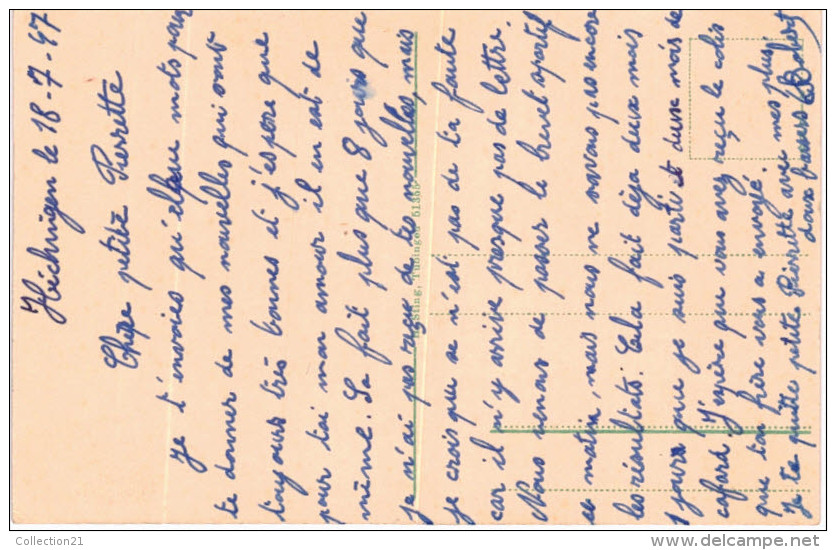 Héchingen le 18-7-47
Chère petite Pierrette
Je t'envoies qu'elque mots pour
te donner de mes nouvelles qui sont
toujours très bonnes et j'espère que
pour toi mon amour il en est de
même. Sa fait plus que 8 jours que
je n'ai pas reçue de tes nouvelles, mais
je crois que se n'est pas de ta faute
car il n'y arrive presque pas de lettre.
Nous venons de passer le brevet sportif
se matin, mais nous ne savons pas encore
les résultats. Cela fait déja deux mois
1 jours que je suis parti et deux mois de
cafard J'espère que vous avez reçu le colis
que ton frère vous a envoyé.
Je te quitte petite Pierrette avec mes plus
doux baisers Robert
Tübingen
Collection21
www.delcampe.net